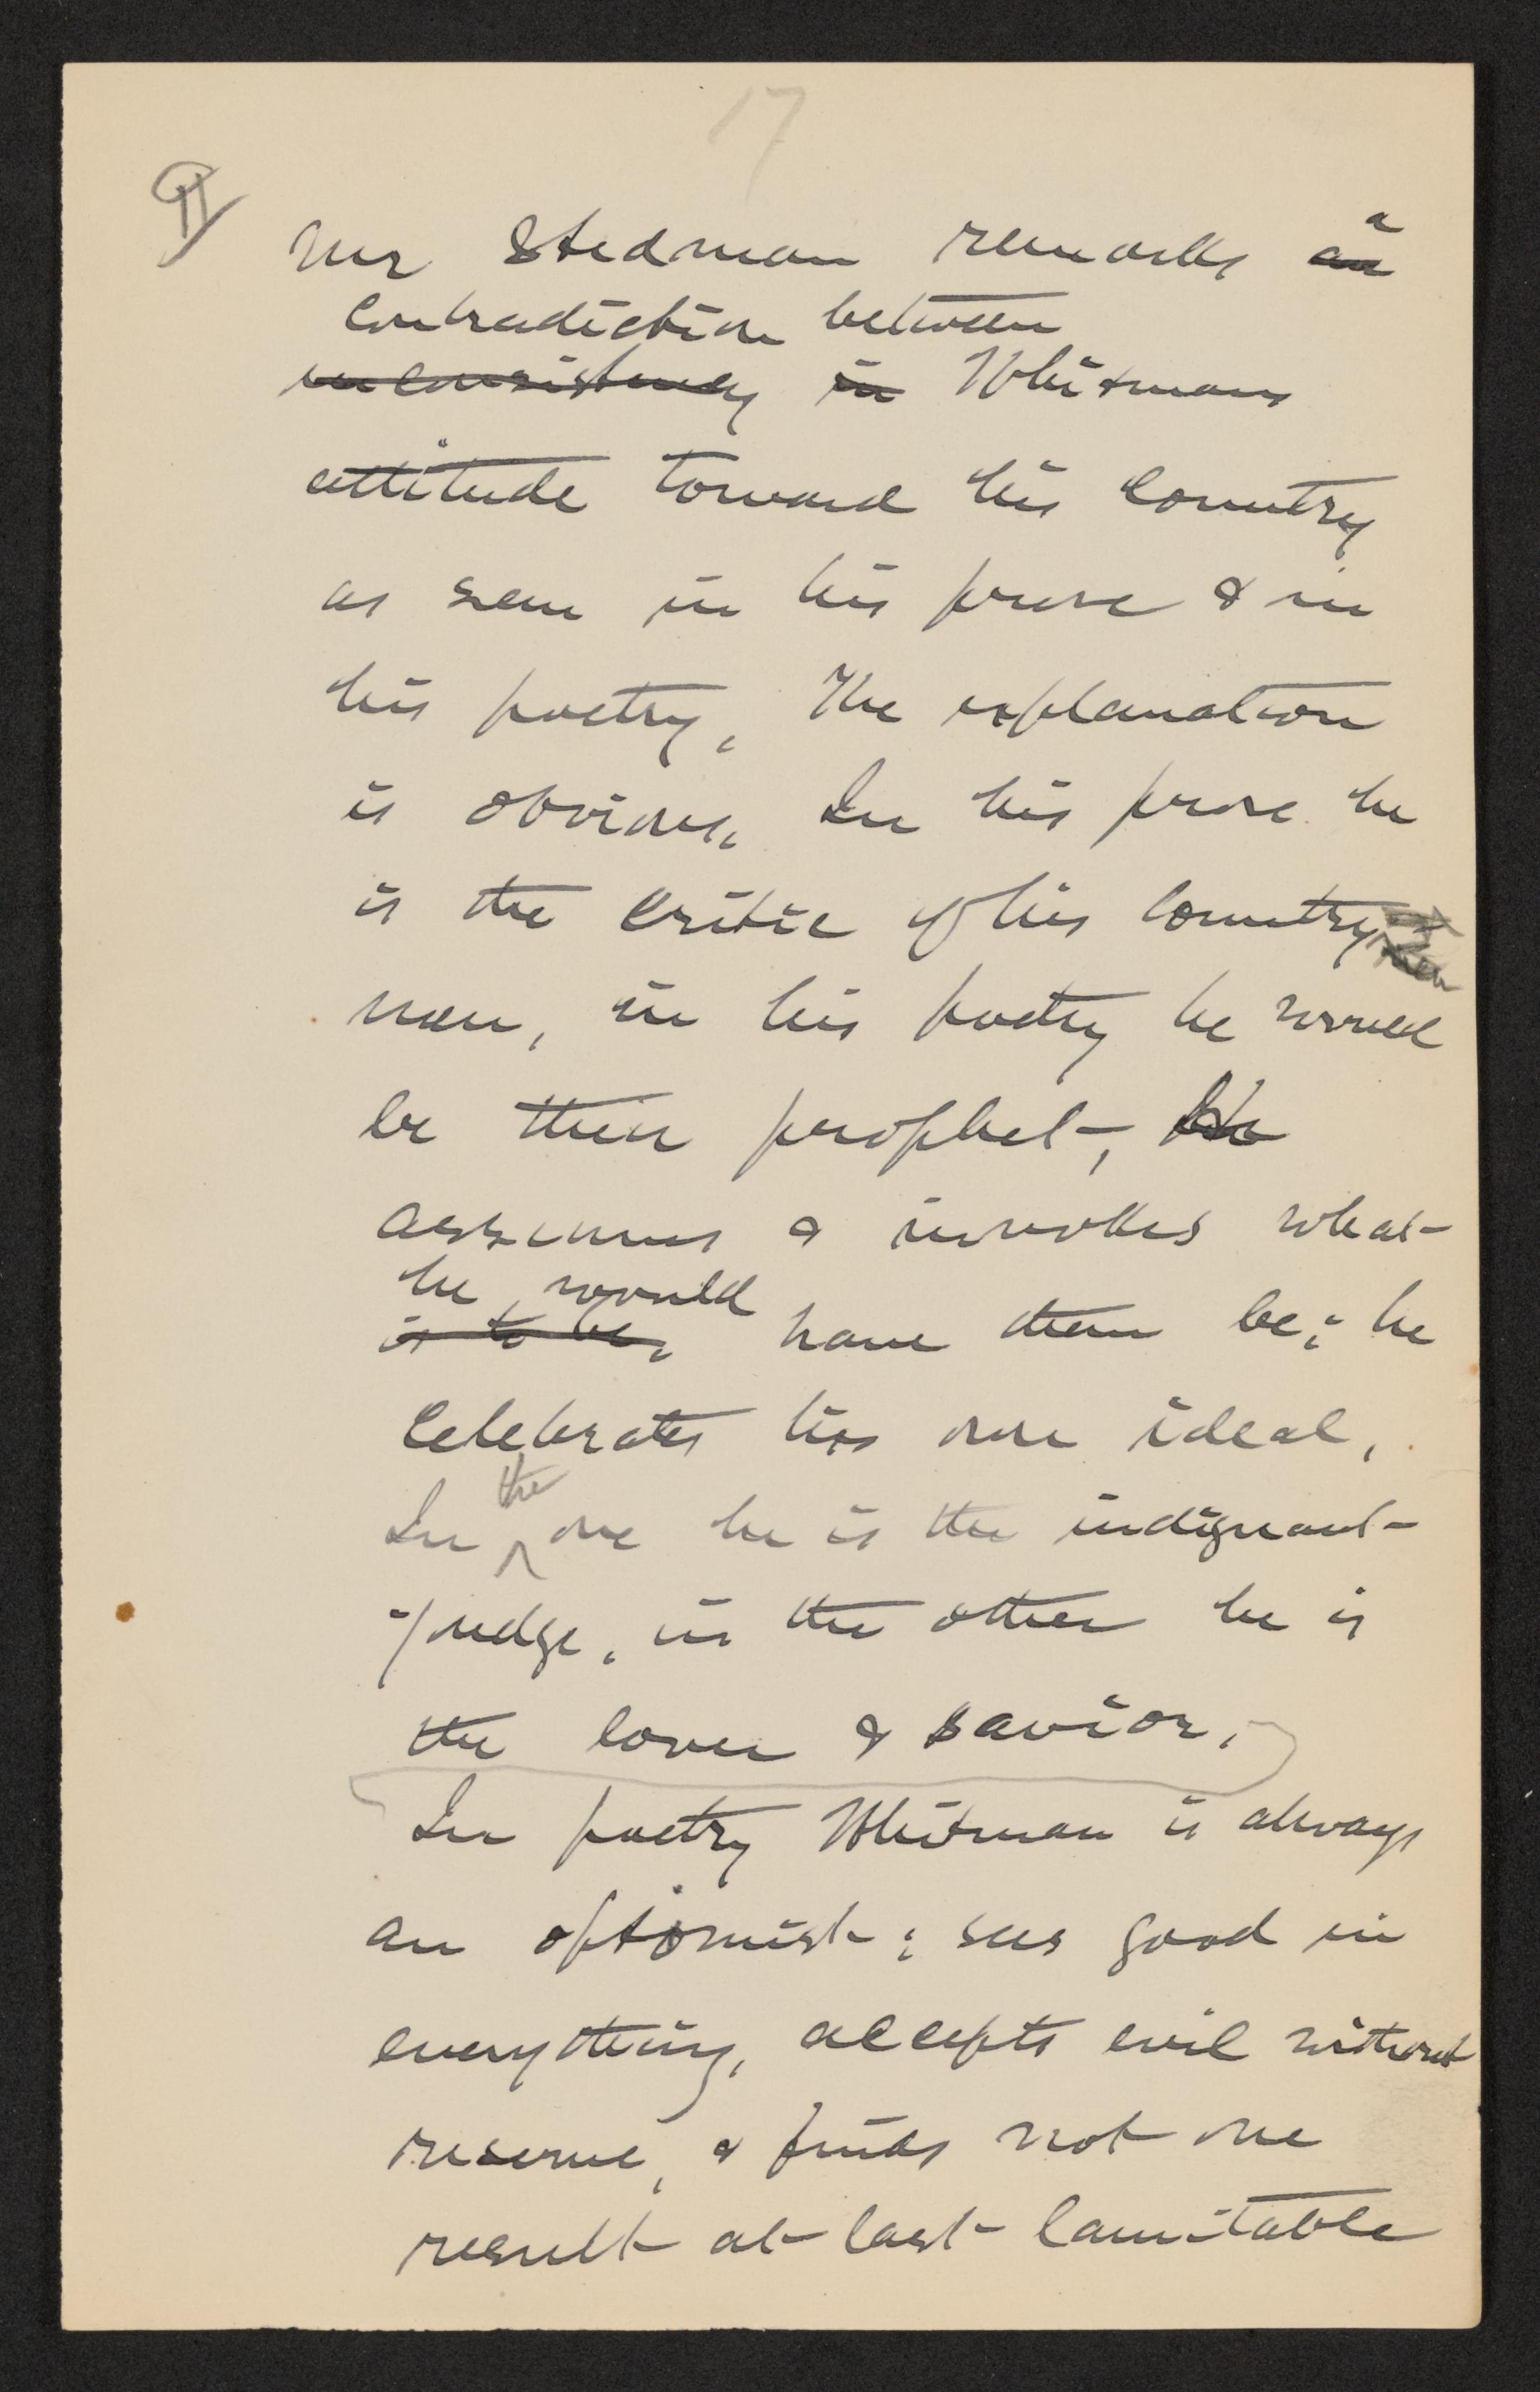 17
¶ Mr Stedman remarks an a
contradiction between
inconsistency in Whitmans
attitude toward his country
as seen in his prose & in
his poetry. The explanation
is obvious. In his prose he
is the critic of his country
men, in his poetry he would
be their prophet, He
assumes & invokes what
he would
is to be, have them be; he
celebrates his own ideal.
the
In one he is the indignant
judge, in the other he is
the lover & savior.
In poetry Whitman is always
an optomist; sees good in
everything, accepts evil without
reserve, & finds not one
result at last lamitable